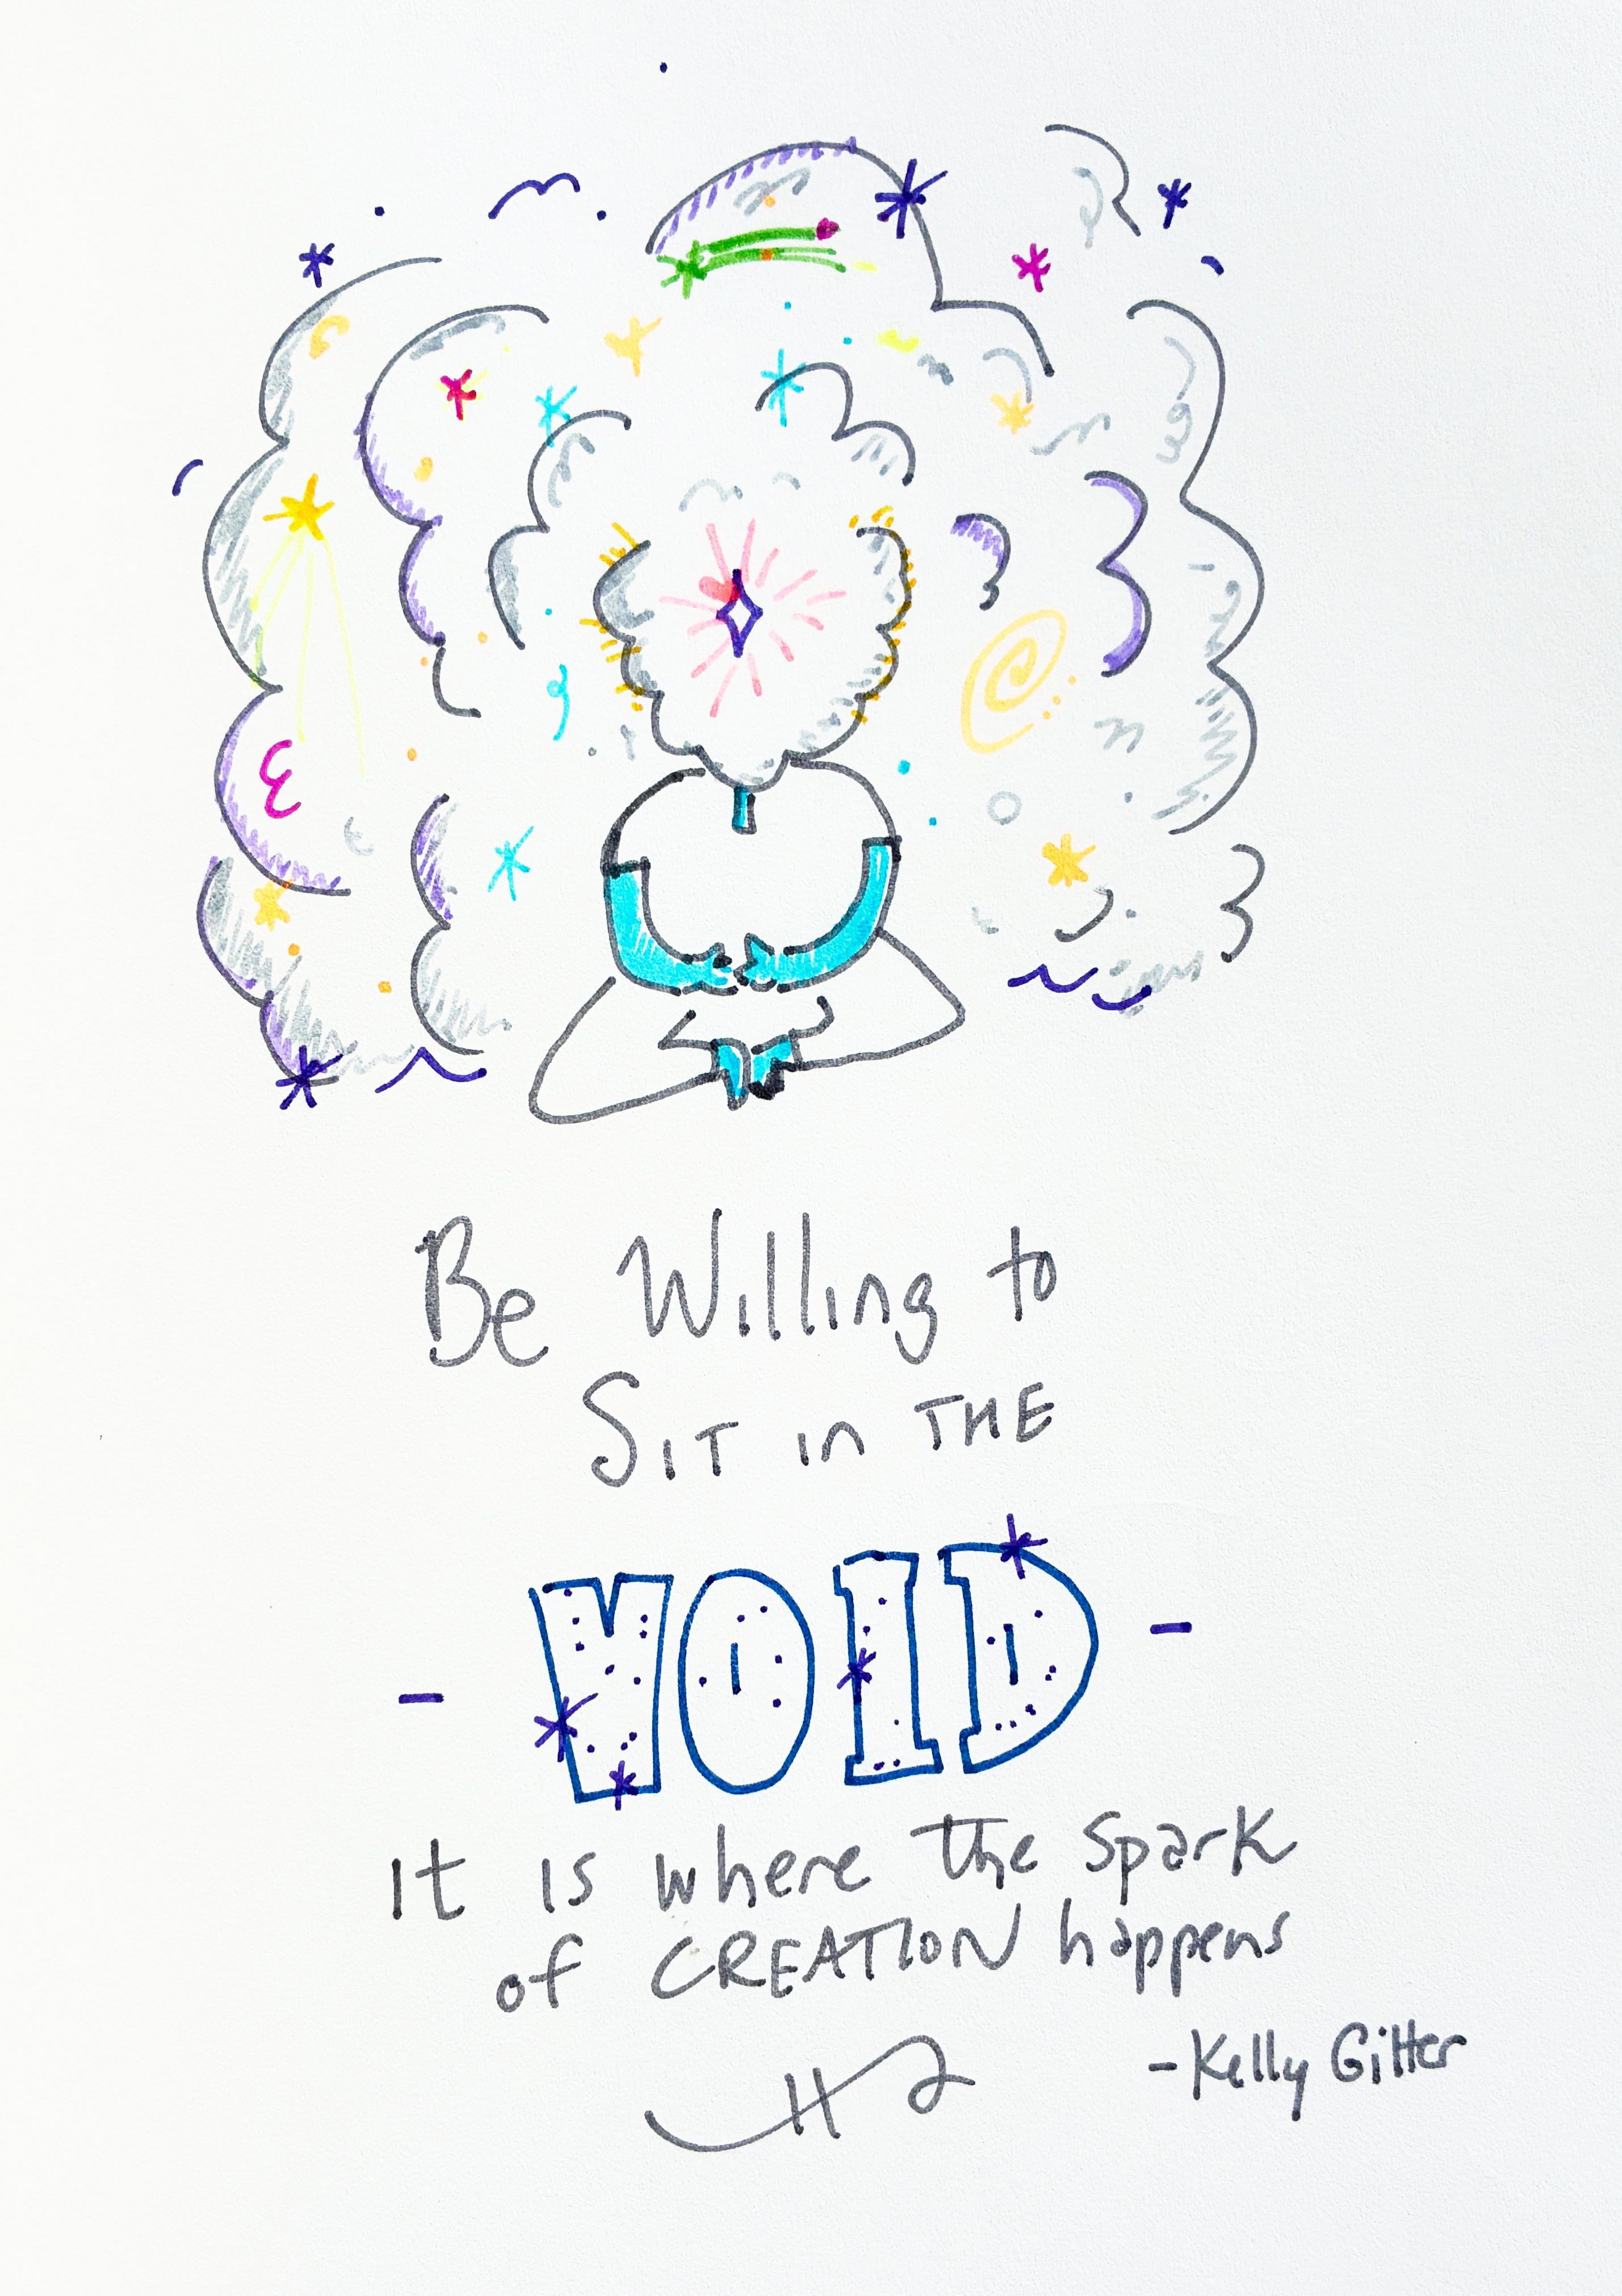 Be Willing to
SIT in THE
- VOID -
It is where the spark
of CREATION happens
-Kelly Gitter